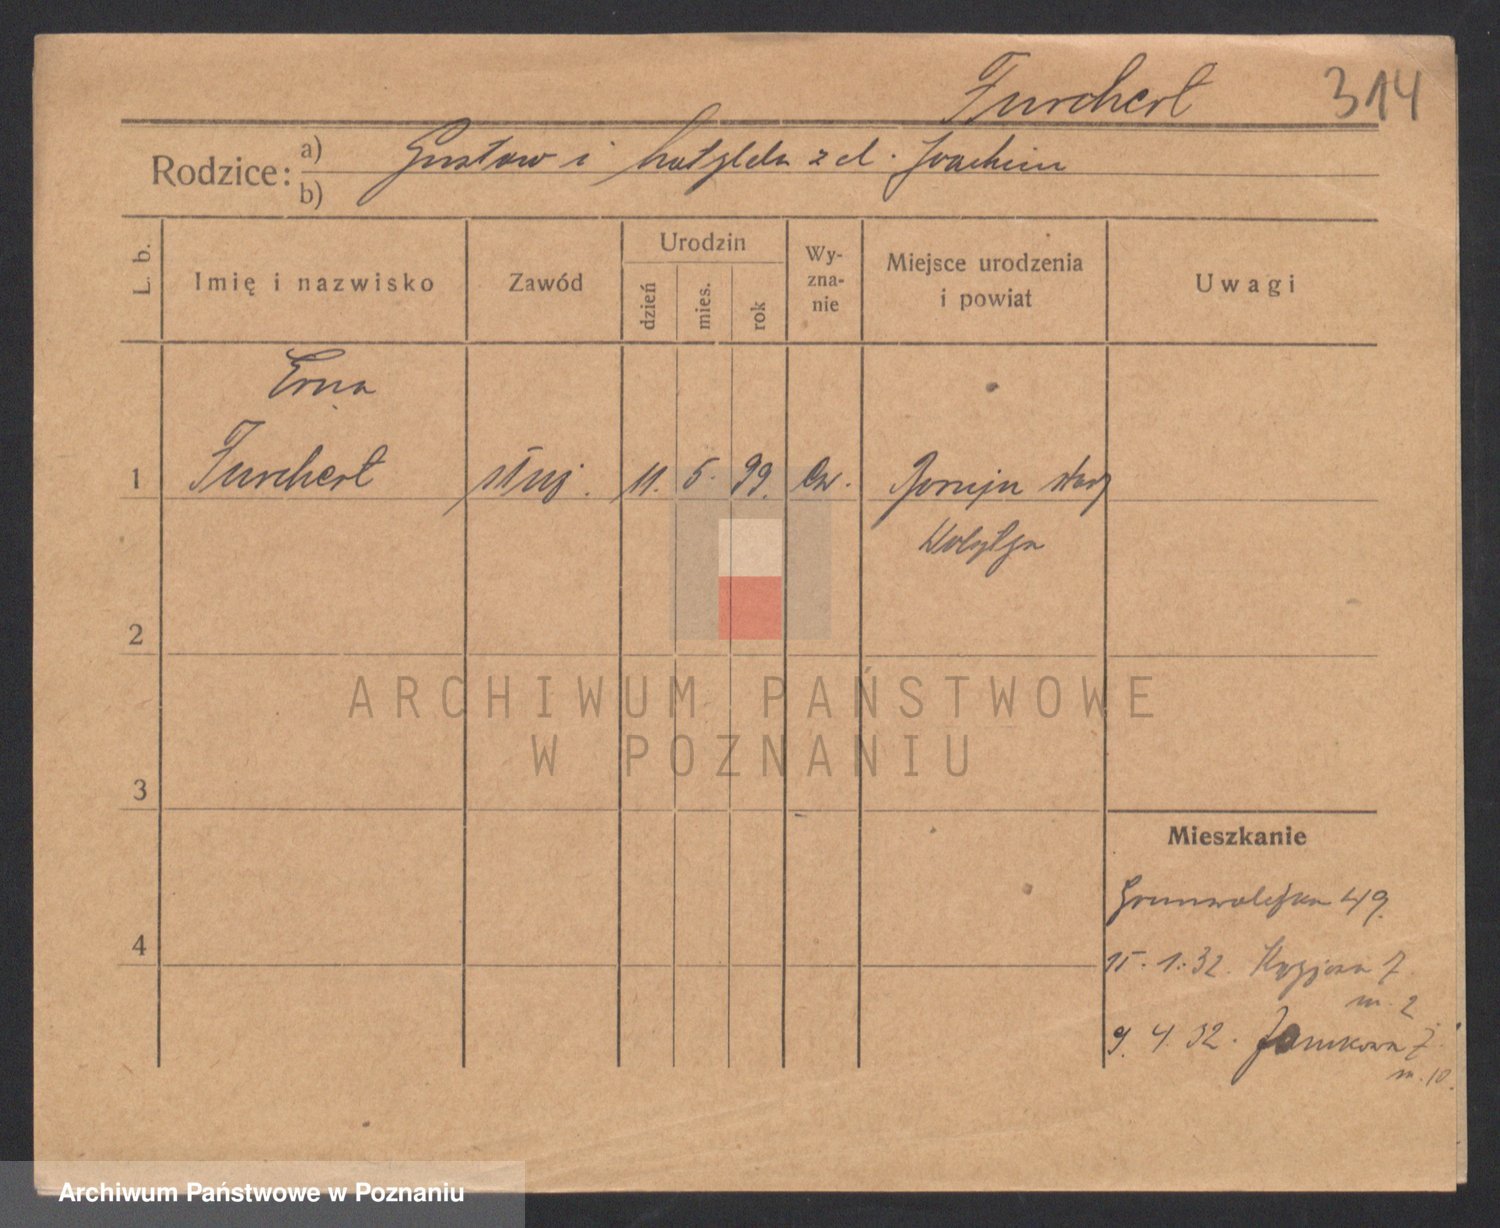 Furchert 314
Rodzice: a) Gustaw i Matylda z d. Joachim
b)
L. b.
Imię i nazwisko
Zawód
Urodzin
dzień
mies.
rok
Wy-
zna-
nie
Miejsce urodzenia
i powiat
Uwagi
Erna
1 Furchert służ. 11. 5. 99. Ew.
2
3
4
Mieszkanie
Grunwaldzka 49.
15. 1. 32. 7
m. 2
9. 4. 32. 7
m. 10.
ARCHIWUM PAŃSTWOWE
W POZNANIU
Archiwum Państwowe w Poznaniu